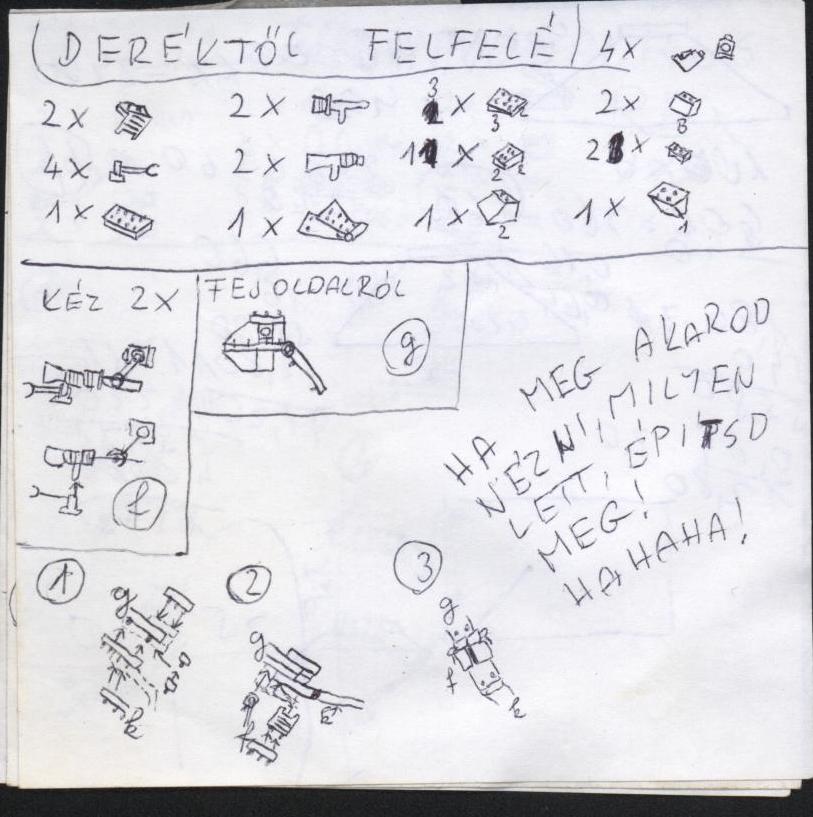 DERÉKTŐL FELFELÉ 4x
2x 2x 3x 3 2 2x 3
4x 2x 1x 2 2 2x
1x 1x 1x 2 1x 1
KÉZ 2X
FEJ OLDALRÓL
g
f
HA MEG AKAROD
NÉZNI, MILYEN
LETT, ÉPÍTSD
MEG!
HAHAHA!
1 2 3
g g g
f k
k